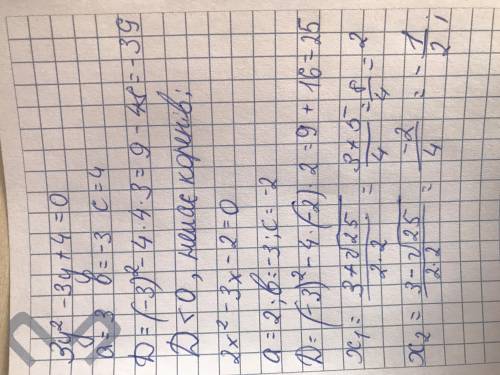 3y² - 3y + 4 = 0
a = 3 b = -3 c = 4
D = (-3)² - 4·4·3 = 9 - 48 = -39
D < 0, немає коренів;
2x² - 3x - 2 = 0
a = 2; b = -3; c = -2
D = (-3)² - 4·(2)·2 = 9 + 16 = 25
x₁ = (3+√25)/(2·2) = (3+5)/4 = 8/4 = 2
x₂ = (3-√25)/(2·2) = -2/4 = -1/2;